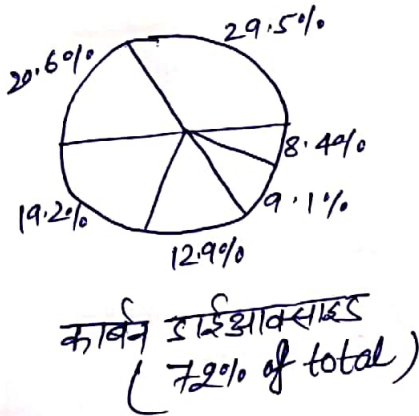 29.5%
20.6%
8.4%
9.1%
19.2%
12.9%
कार्बन डाईआक्साइड
(72% of total)